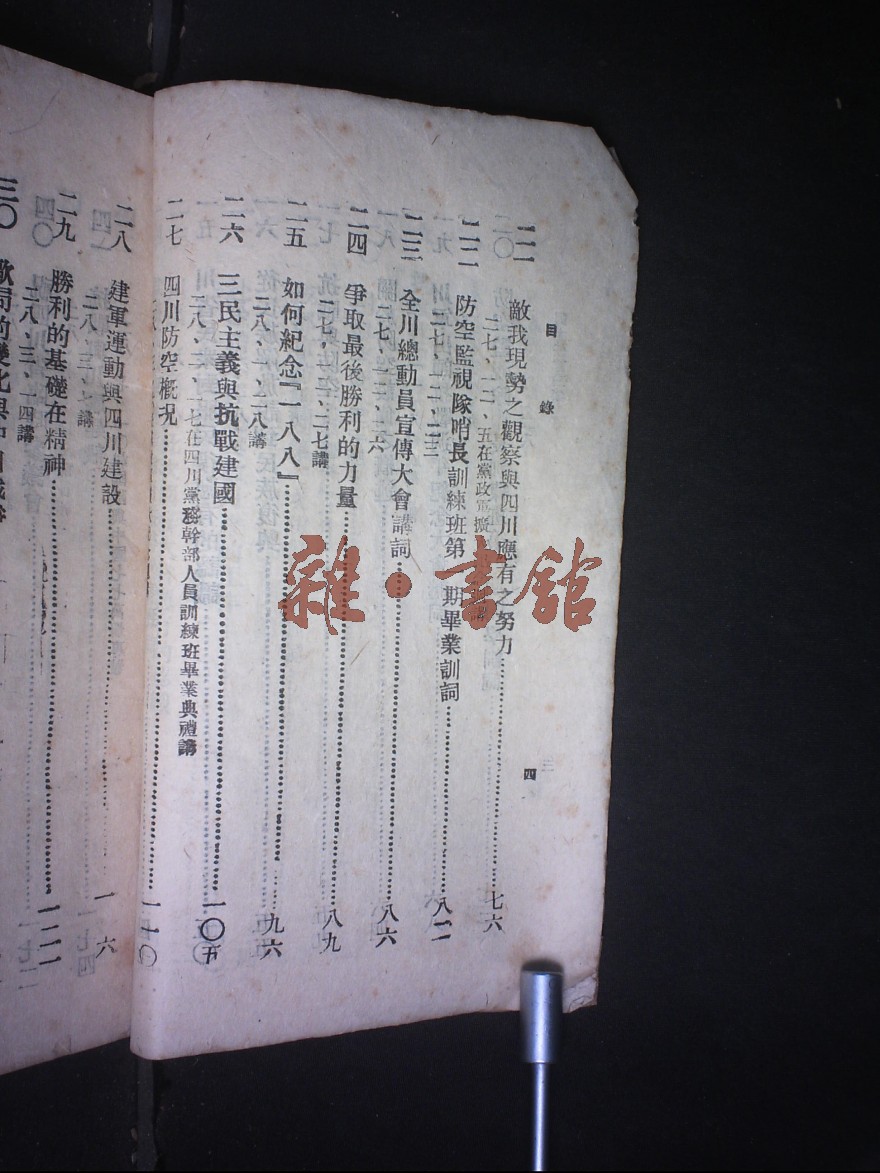 目錄
四
二一 敵我現勢之觀察與四川應有之努力……七六
二七、一二、五在黨政軍
二二 防空監視隊哨長訓練班第 期畢業訓詞……八二
二七、一二、二三
二三 全川總動員宣傳大會講詞……八六
二七、一二、二六
二四 爭取最後勝利的力量……八九
二七、一二、二七講
二五 如何紀念『一二八』……九六
二八、一、二八講
二六 三民主義與抗戰建國……一〇五
二八、二、一七在四川黨務幹部人員訓練班畢業典禮講
二七 四川防空概況……一一〇
二八 建軍運動與四川建設……一 六
二八、三、七講
二九 勝利的基礎在精神……一二一
二八、三、一四講
三〇
雜·書館